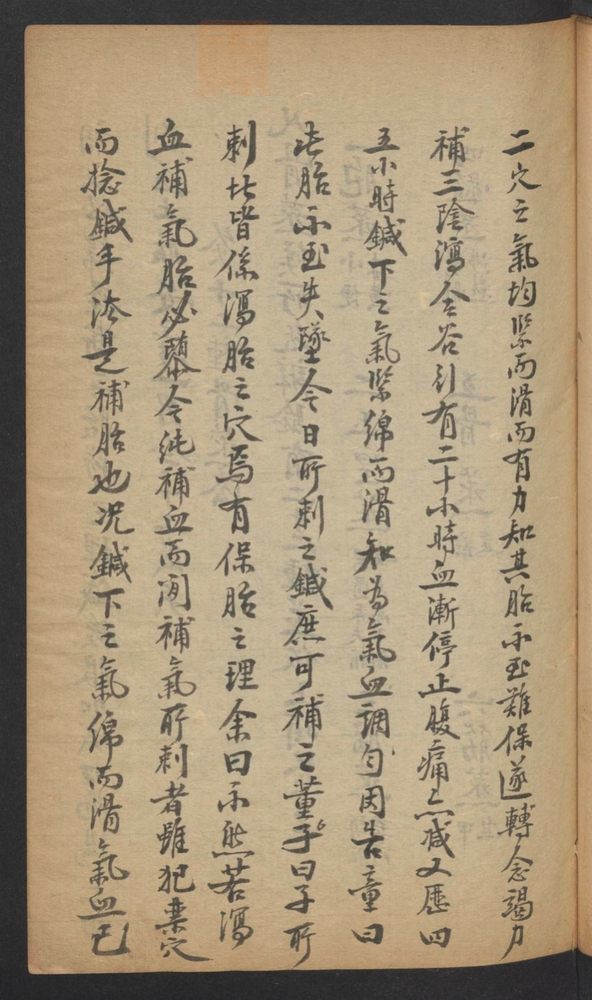 二穴之氣均緊而滑而有力知其胎不至難保遂轉念竭力
補三陰瀉合谷引有二十小時血漸停止腹痛亦減又歷四
五小時鍼下之氣緊綿而滑知為氣血調勻因告童曰
此胎不至失墜今日所刺之鍼庶可補之董子曰子所
刺此皆係瀉胎之穴焉有保胎之理余曰不然若瀉
血補氣胎必墮今純補血而間補氣所刺者雖犯棄穴
而捻鍼手法是補胎也况鍼下之氣綿而滑氣血已